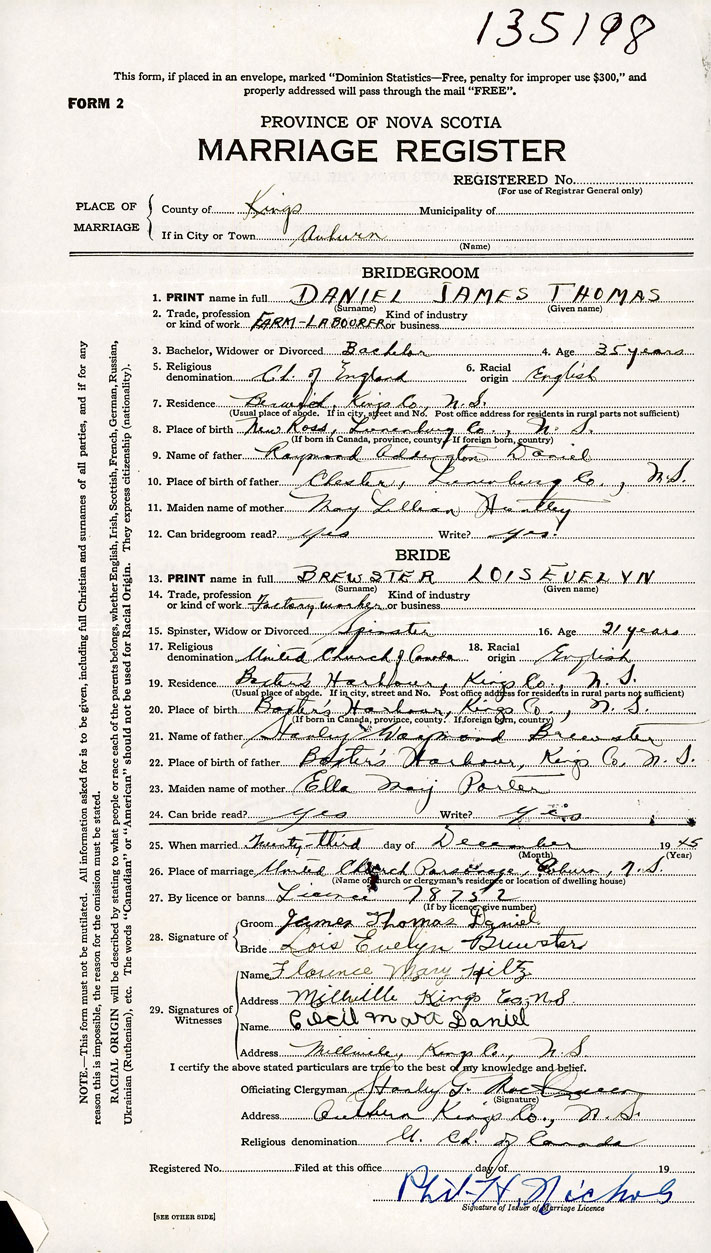 135198
This form, if placed in an envelope, marked "Dominion Statistics—Free, penalty for improper use $300," and
properly addressed will pass through the mail "FREE".
FORM 2
PROVINCE OF NOVA SCOTIA
MARRIAGE REGISTER
REGISTERED No.
(For use of Registrar General only)
PLACE OF MARRIAGE
County of Kings Municipality of
If in City or Town Auburn
(Name)
BRIDEGROOM
1. PRINT name in full DANIEL JAMES THOMAS
(Surname) (Given name)
2. Trade, profession or kind of work FARM-LABOURER Kind of industry or business
3. Bachelor, Widower or Divorced Bachelor 4. Age 35 years
5. Religious denomination Ch. of England 6. Racial origin English
7. Residence Berwick, Kings Co., N.S.
(Usual place of abode. If in city, street and No. Post office address for residents in rural parts not sufficient)
8. Place of birth New Ross, Lunenburg Co., N. S.
(If born in Canada, province, county. If foreign born, country)
9. Name of father Raymond Addington Daniel
10. Place of birth of father Chester, Lunenburg Co., N.S.
11. Maiden name of mother May Lillian Huntley
12. Can bridegroom read? yes Write? yes.
BRIDE
13. PRINT name in full BREWSTER LOIS EVELYN
(Surname) (Given name)
14. Trade, profession or kind of work Factory worker Kind of industry or business
15. Spinster, Widow or Divorced Spinster 16. Age 21 years
17. Religious denomination United Church of Canada 18. Racial origin English
19. Residence Baxter's Harbour, Kings Co., N. S.
(Usual place of abode. If in city, street and No. Post office address for residents in rural parts not sufficient)
20. Place of birth Baxter's Harbour, Kings Co., N. S.
(If born in Canada, province, county. If foreign born, country)
21. Name of father Stanley Raymond Brewster
22. Place of birth of father Baxter's Harbour, Kings Co. N. S.
23. Maiden name of mother Ella May Porter
24. Can bride read? yes Write? yes
25. When married Twenty-third day of December 19 45
(Month) (Year)
26. Place of marriage United Church Parsonage, Auburn, N.S.
(Name of church or clergyman's residence or location of dwelling house)
27. By licence or banns Licence 78752
(If by licence, give number)
28. Signature of
Groom James Thomas Daniel
Bride Lois Evelyn Brewster
29. Signatures of Witnesses
Name Florence Mary Hiltz
Address Millville Kings Co., N.S.
Name Cecil Daniel
Address Millville, Kings Co., N. S.
I certify the above stated particulars are true to the best of my knowledge and belief.
Officiating Clergyman Stanley G. MacQueen
(Signature)
Address Auburn Kings Co., N. S.
Religious denomination U. Ch. of Canada
Registered No. Filed at this office day of 19
Phil H. Nichols
Signature of Issuer of Marriage Licence
[SEE OTHER SIDE]
NOTE.—This form must not be mutilated. All information asked for is to be given, including full Christian and surnames of all parties, and if for any
reason this is impossible, the reason for the omission must be stated.
RACIAL ORIGIN will be described by stating to what people or race each of the parents belongs, whether English, Irish, Scottish, French, German, Russian,
Ukrainian (Ruthenian), etc. The words "Canadian" or "American" should not be used for Racial Origin. They express citizenship (nationality).